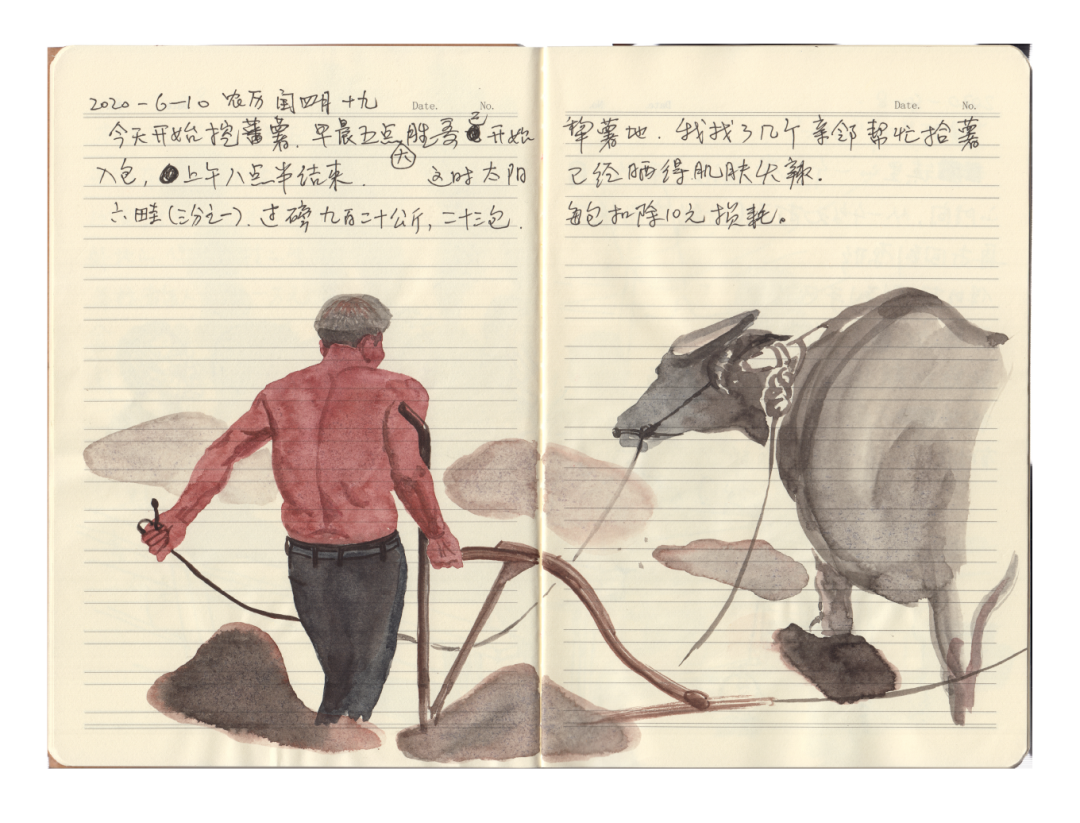 2020-6-10 农历闰四月十九 Date. No. Date. No.
今天开始挖蕃薯. 早晨五点大胜哥已开始犁薯地. 我找了几个亲邻帮忙拾薯
入包, 上午八点半结束. 这时太阳已经晒得肌肤火辣.
六畦(三分之一). 过磅九百二十公斤, 二十三包. 每包扣除10元损耗。